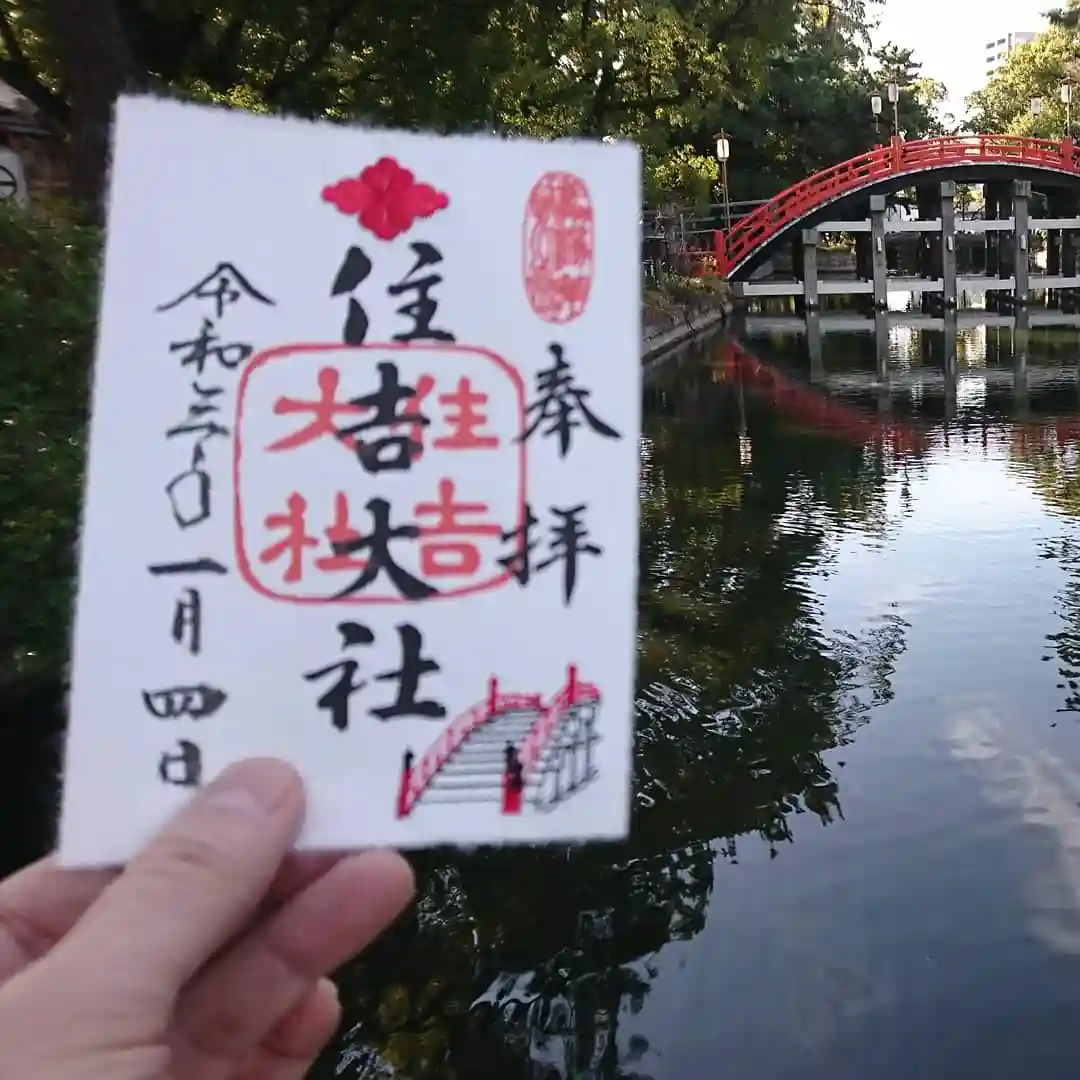 奉拝
住吉大社
住吉大社
令和三年十一月四日